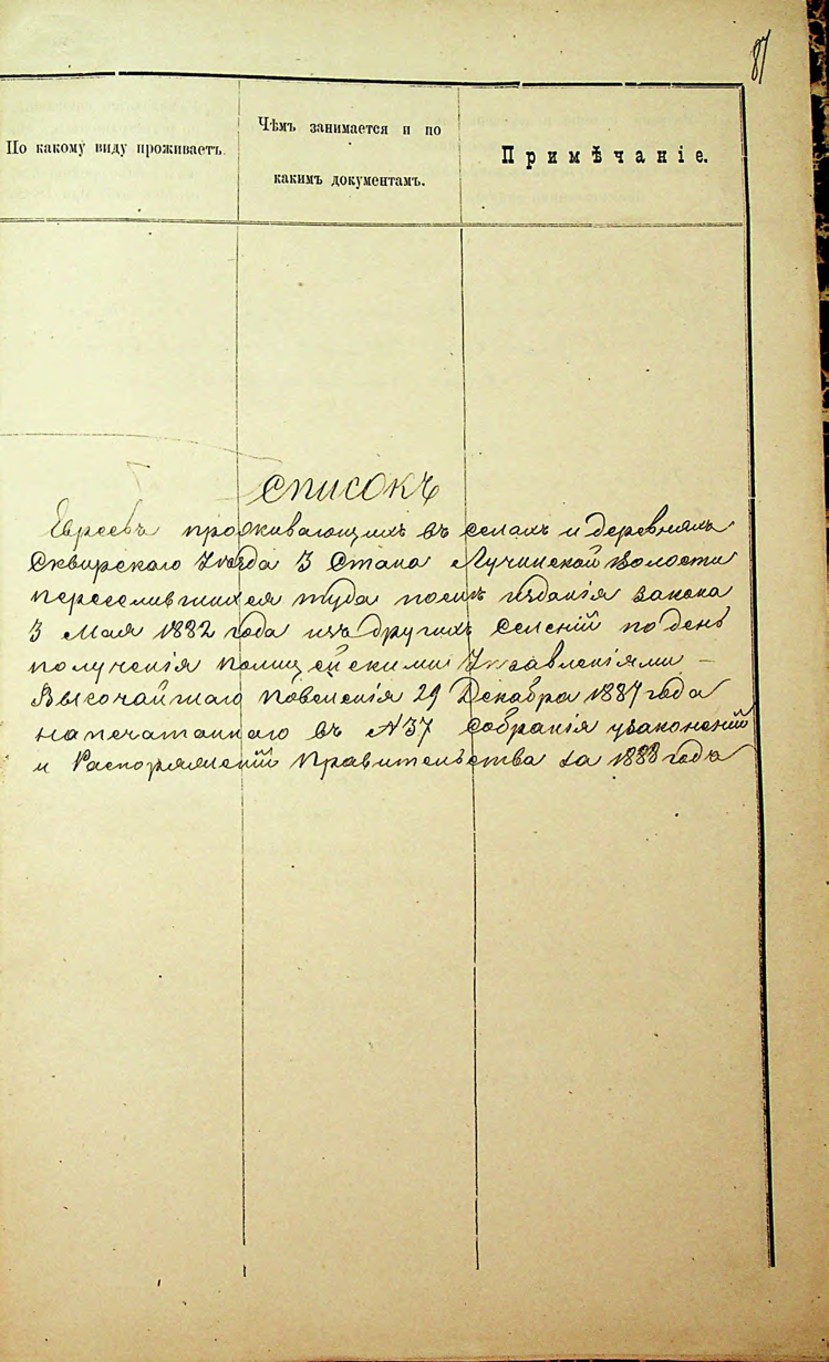 87
По какому виду проживаетъ.
Чѣмъ занимается и по
какимъ документамъ.
Примѣчаніе.
Списокъ
Евреевъ проживающихъ въ селахъ и деревняхъ
Сквирскаго Уѣзда 3 Стана Лучинской волости
переселившихся туда послѣ изданія закона
3 Мая 1882 года изъ другихъ селеній по день
полученія полицейскими Управленіями –
Высочайшаго повеленія 29 Декабра 1887 года
напечатаннаго въ №37 Собранія узаконеній
и Распоряженій Правительства за 1888 годъ